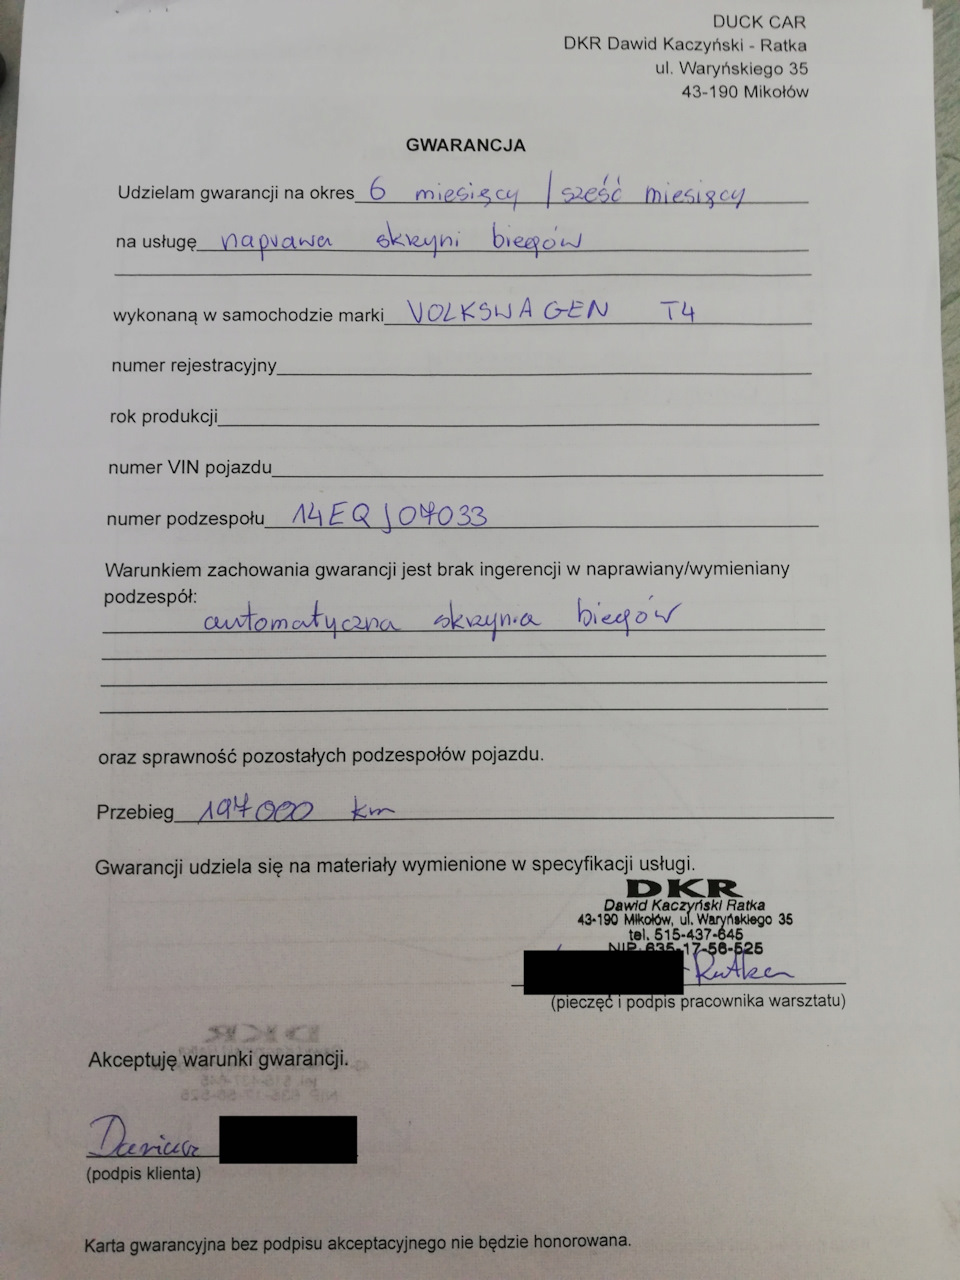 DUCK CAR
DKR Dawid Kaczyński - Ratka
ul. Waryńskiego 35
43-190 Mikołów
GWARANCJA
Udzielam gwarancji na okres 6 miesięcy / sześć miesięcy
na usługę naprawa skrzyni biegów
wykonaną w samochodzie marki VOLKSWAGEN T4
numer rejestracyjny
rok produkcji
numer VIN pojazdu
numer podzespołu 14EQJ07033
Warunkiem zachowania gwarancji jest brak ingerencji w naprawiany/wymieniany
podzespół:
automatyczna skrzynia biegów
oraz sprawność pozostałych podzespołów pojazdu.
Przebieg 197000 km
Gwarancji udziela się na materiały wymienione w specyfikacji usługi.
DKR
Dawid Kaczyński Ratka
43-190 Mikołów, ul. Waryńskiego 35
tel. 515-437-645
NIP 635-17-56-525
Ratka
(pieczęć i podpis pracownika warsztatu)
Akceptuję warunki gwarancji.
Dariusz
(podpis klienta)
Karta gwarancyjna bez podpisu akceptacyjnego nie będzie honorowana.